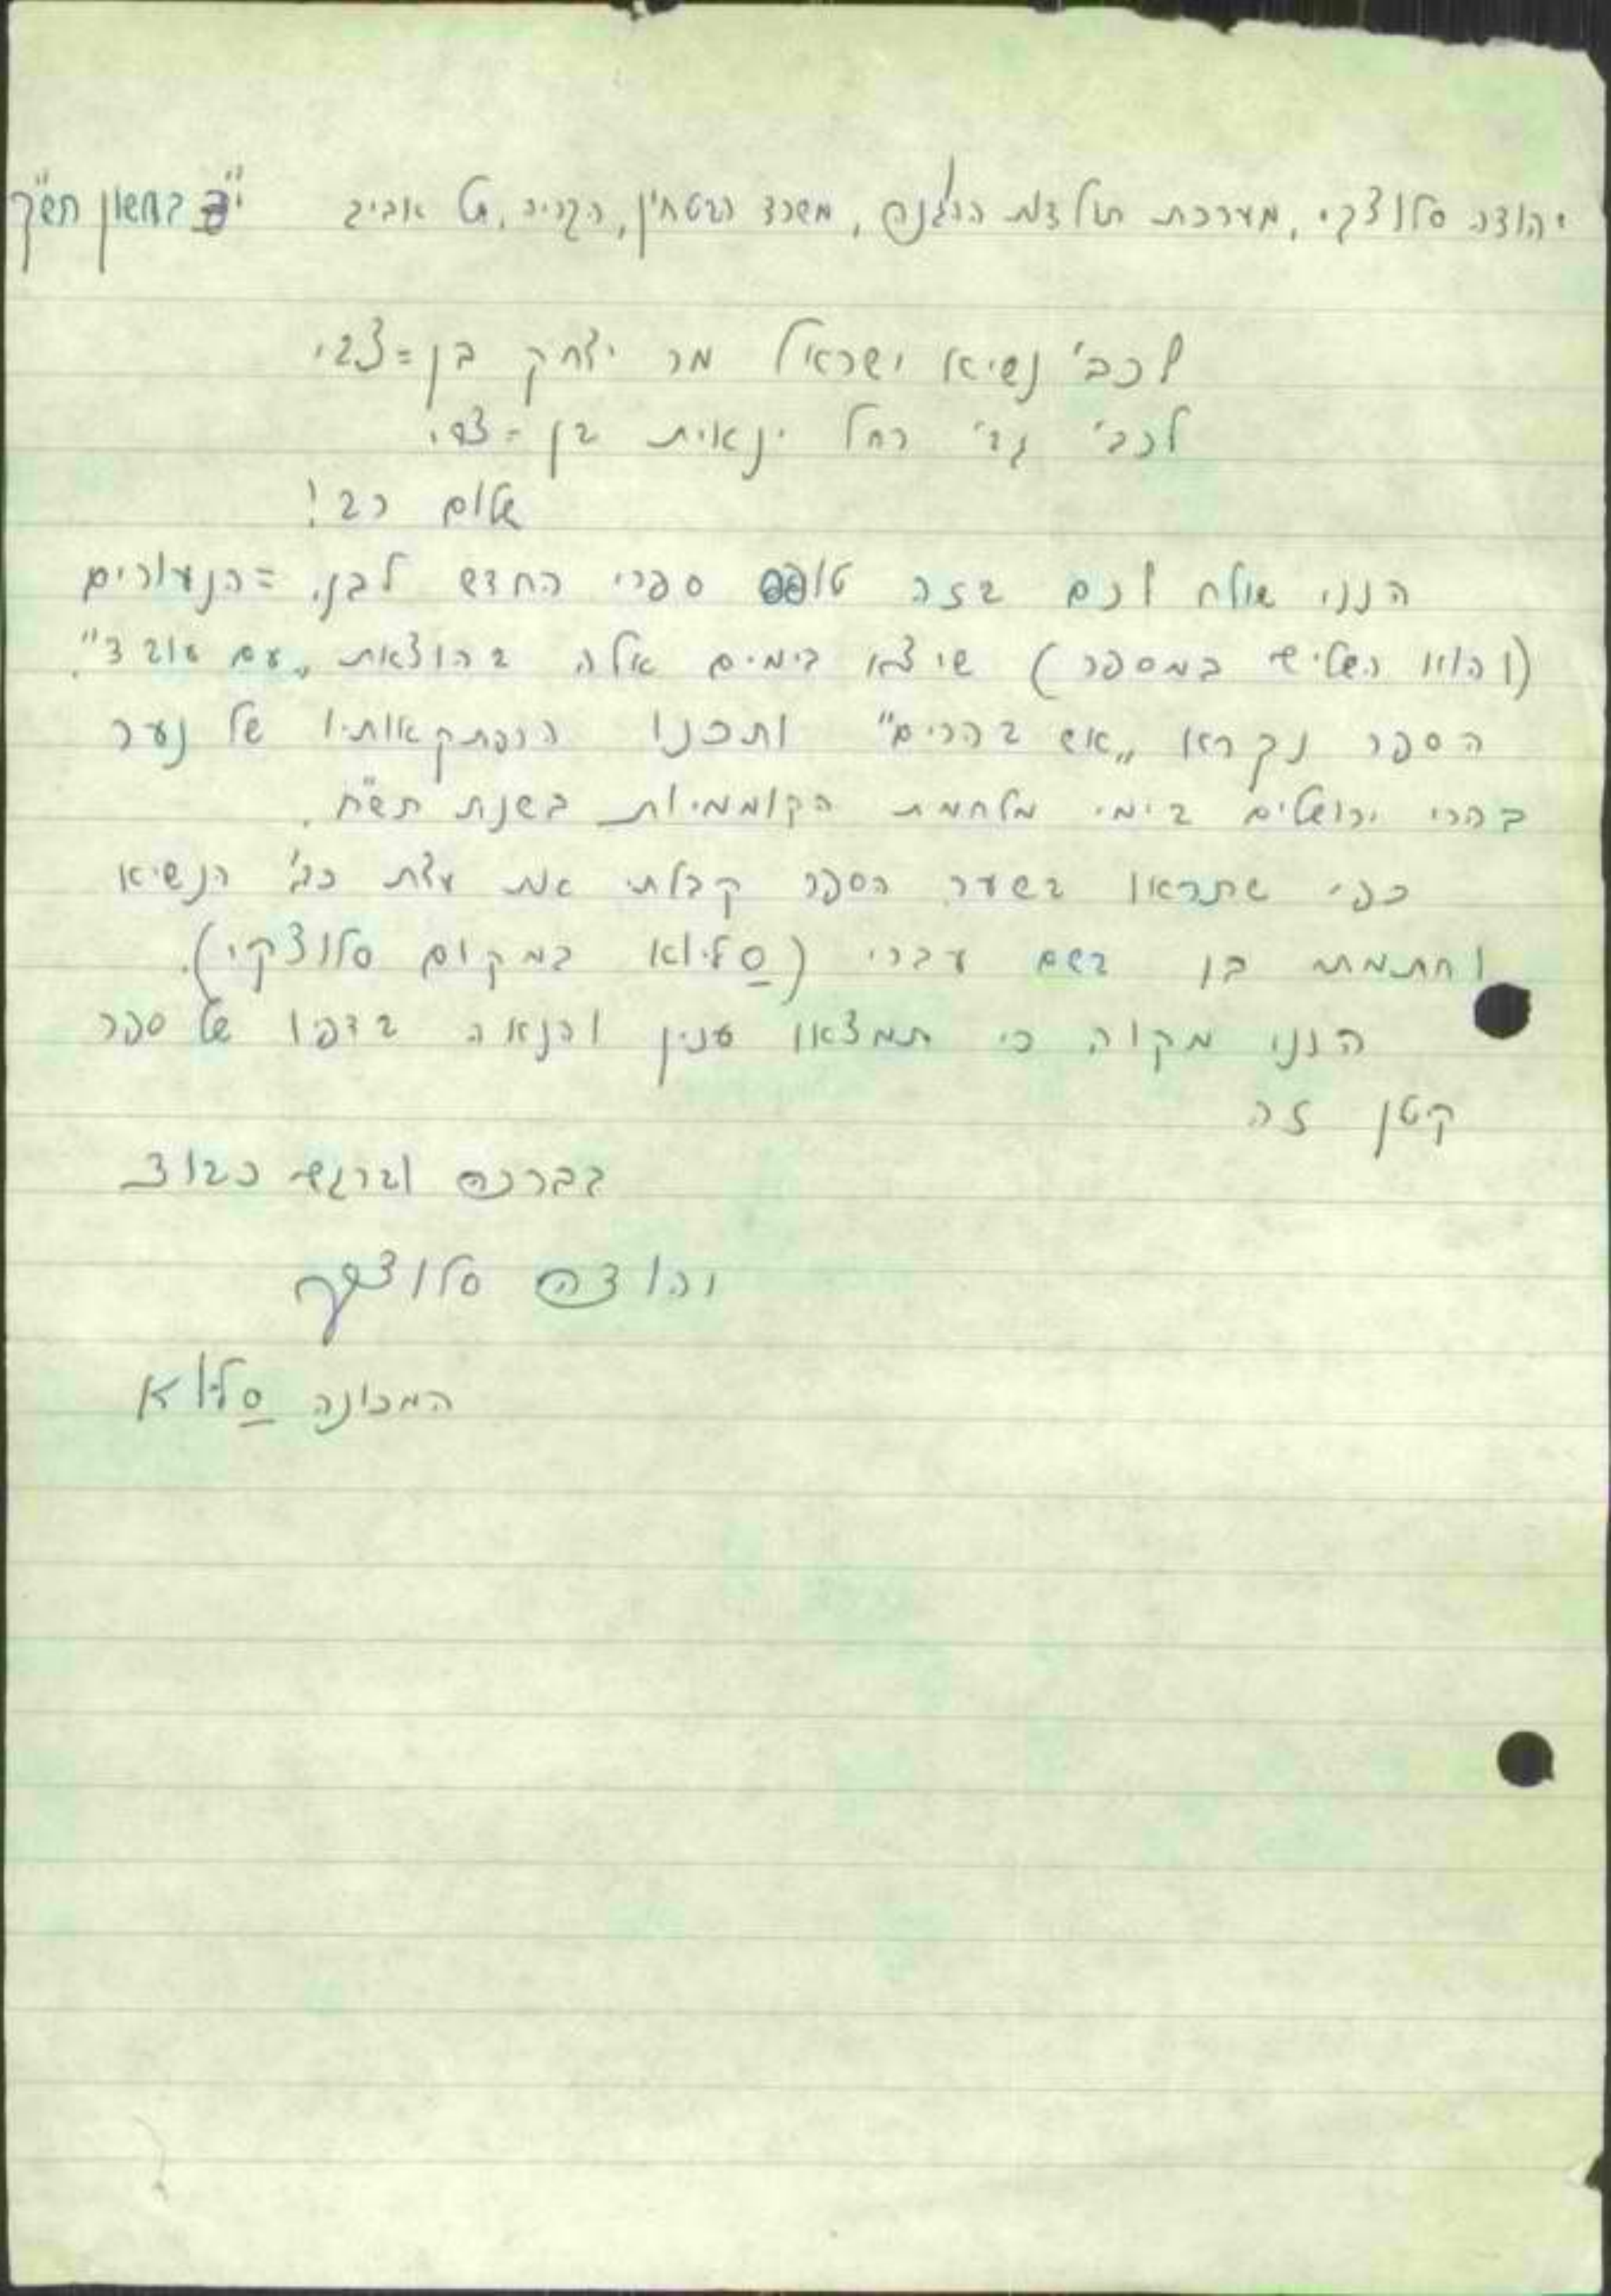 יהודה סלוצקי, מערכת תולדות ההגנה, משרד הבטחון, הקריה, תל אביב בחשון תש"ך
לכב' נשיא ישראל מר יצחק בן=צבי
לכב' גב' רחל ינאית בן=צבי
שלום רב!
הנני שולח לכם בזה טופס ספרי החדש לבני=הנעורים
(והוא השלישי במספר) שיצא בימים אלה בהוצאת „עם עובד".
הספר נקרא „אש בהרים" ותכנו הרפתקאותיו של נער
בהרי ירושלים בימי מלחמת הקוממיות בשנת תש"ח.
כפי שתראו בשער הספר קבלתי את עצת כב' הנשיא
וחתמתי בו בשם עברי (סליוא במקום סלוצקי).
הנני מקוה כי תמצאו ענין והנאה בדפיו של ספר
קטן זה
בברכה וברגשי כבוד
יהודה סלוצקי
המכונה סליוא